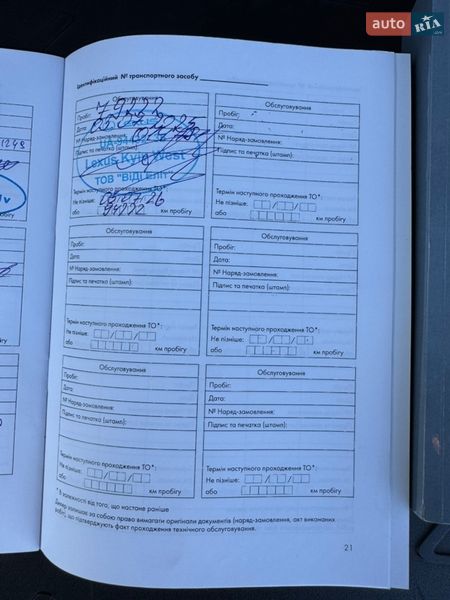 auto RIA.com
Ідентифікаційний № транспортного засобу
Обслуговування
Пробіг: 79222
Дата:
№ Наряд-замовлення:
Підпис та печатка (штамп):
Lexus Kyiv West
ТОВ "ВІДІ ЕЛІТ"
Термін наступного проходження ТО*:
Не пізніше:
або 94222 км пробігу
Обслуговування
Пробіг:
Дата:
№ Наряд-замовлення:
Підпис та печатка (штамп):
Термін наступного проходження ТО*:
Не пізніше:
або км пробігу
Обслуговування
Пробіг:
Дата:
№ Наряд-замовлення:
Підпис та печатка (штамп):
Термін наступного проходження ТО*:
Не пізніше:
або км пробігу
Обслуговування
Пробіг:
Дата:
№ Наряд-замовлення:
Підпис та печатка (штамп):
Термін наступного проходження ТО*:
Не пізніше:
або км пробігу
Обслуговування
Пробіг:
Дата:
№ Наряд-замовлення:
Підпис та печатка (штамп):
Термін наступного проходження ТО*:
Не пізніше:
або км пробігу
Обслуговування
Пробіг:
Дата:
№ Наряд-замовлення:
Підпис та печатка (штамп):
Термін наступного проходження ТО*:
Не пізніше:
або км пробігу
* В залежності від того, що настане раніше
Дилер залишає за собою право вимагати оригінали документів (наряд-замовлення, акт виконаних
робіт), що підтверджують факт проходження технічного обслуговування.
21